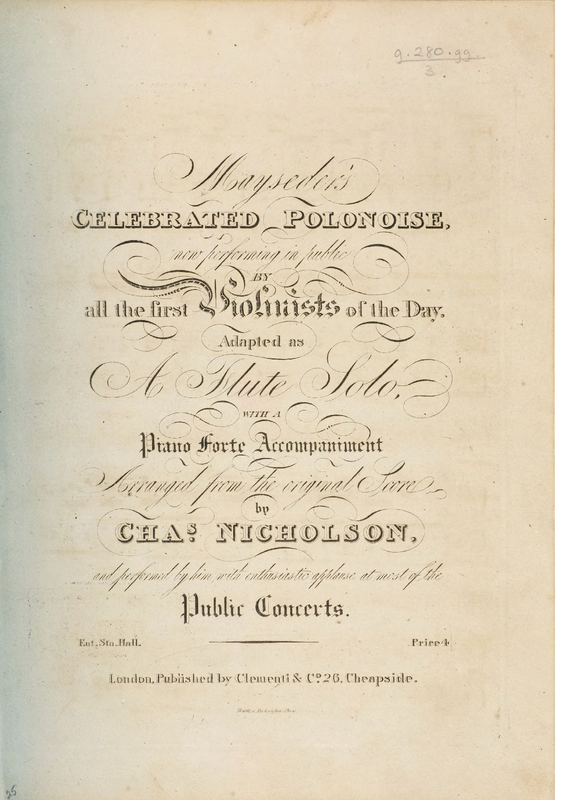 g.280.gg.
3.
Mayseder's
CELEBRATED POLONOISE,
now performing in public
BY
all the first Violinists of the Day.
Adapted as
A Flute Solo,
WITH A
Piano Forte Accompaniment
Arranged from the original Score
by
CHAS. NICHOLSON,
and performed by him with enthusiastic applause at most of the
Public Concerts.
Ent. Sta. Hall. Price 4
London, Published by Clementi & Co. 26, Cheapside.